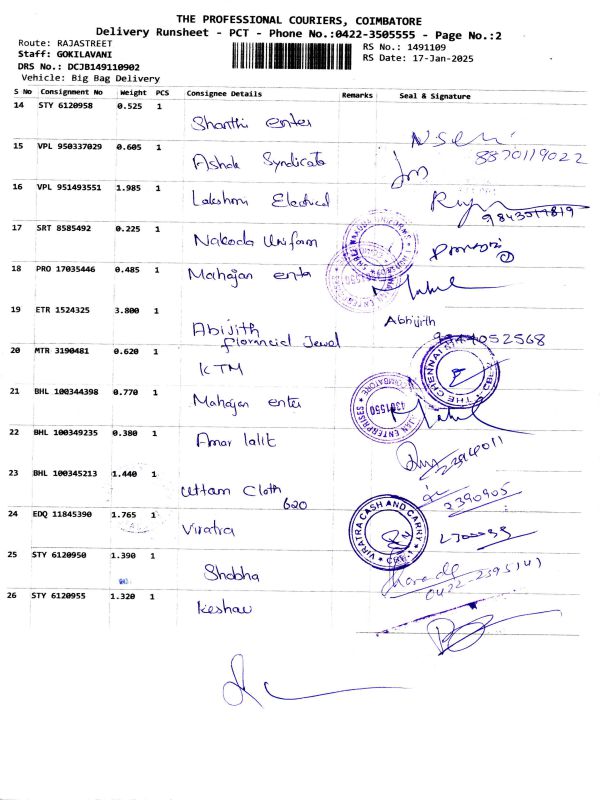 THE PROFESSIONAL COURIERS, COIMBATORE
Delivery Runsheet - PCT - Phone No.:0422-3505555 - Page No.:2
Route: RAJASTREET
RS No.: 1491109
Staff: GOKILAVANI
RS Date: 17-Jan-2025
DRS No.: DCJB149110902
Vehicle: Big Bag Delivery
S No Consignment No Weight PCS Consignee Details Remarks Seal & Signature
14 STY 6120958 0.525 1 Shanthi enter
8870119022
15 VPL 950337029 0.605 1 Ashok Syndicate
16 VPL 951493551 1.985 1 Lakshmi Electrical
17 SRT 8585492 0.225 1 Nakoda Uniform
18 PRO 17035446 0.485 1 Mahajan enta
19 ETR 1524325 3.800 1 Abijith Abhijith
Florancial Jewel
20 MTR 3190481 0.620 1 KTM
THE CHENNAI
21 BHL 100344398 0.770 1 Mahajan enter
4301550
22 BHL 100349235 0.380 1 Amar lalit
23 BHL 100345213 1.440 1 Uttam Cloth
620
2390905
24 EDQ 11845390 1.765 1 Viratra
VIRATRA CASH AND CARRY
25 STY 6120950 1.390 1 Shobha
0422-2395141
26 STY 6120955 1.320 1 Keshav